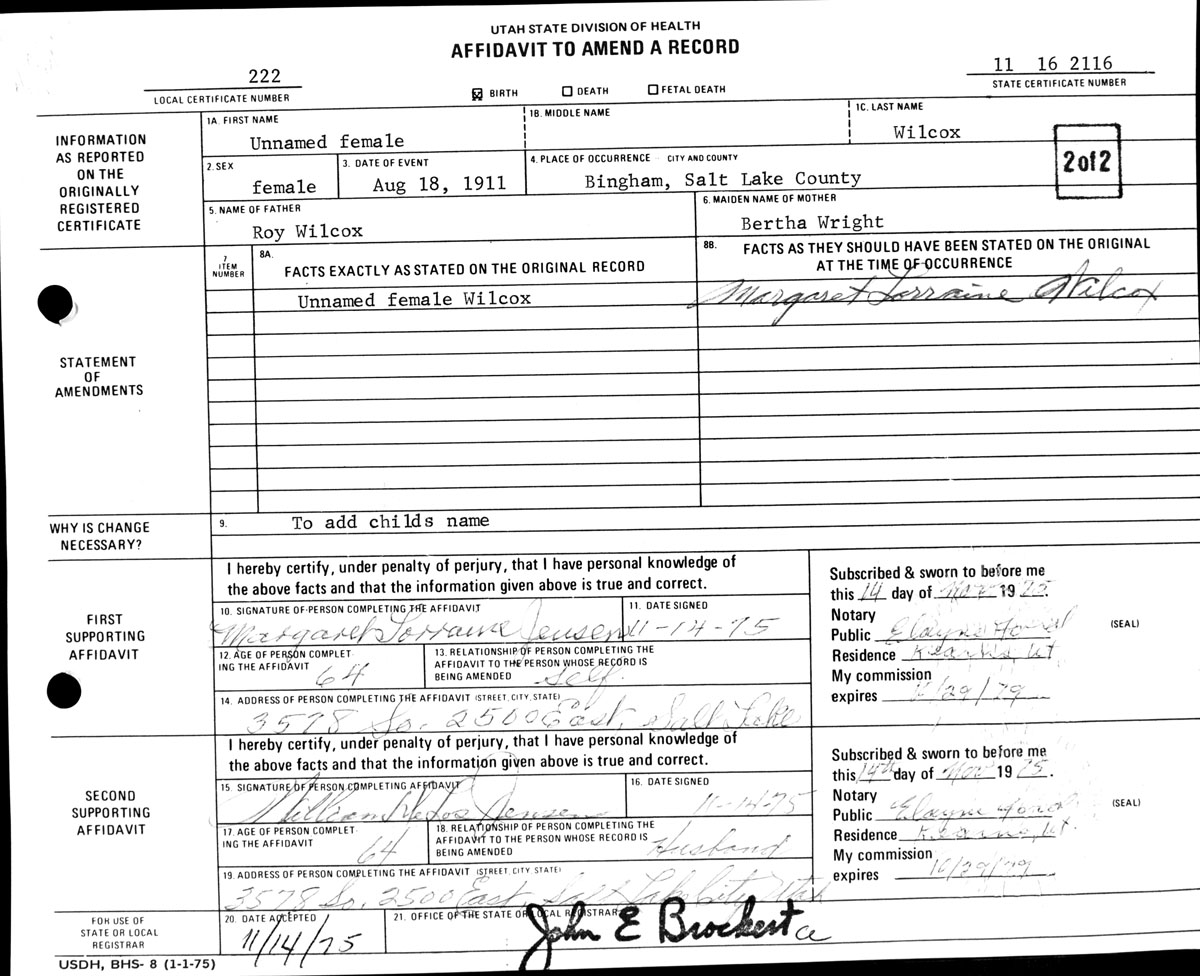 UTAH STATE DIVISION OF HEALTH
AFFIDAVIT TO AMEND A RECORD
222
LOCAL CERTIFICATE NUMBER
☒ BIRTH ☐ DEATH ☐ FETAL DEATH
11 16 2116
STATE CERTIFICATE NUMBER
INFORMATION
AS REPORTED
ON THE
ORIGINALLY
REGISTERED
CERTIFICATE
1A. FIRST NAME
Unnamed female
1B. MIDDLE NAME
1C. LAST NAME
Wilcox
2. SEX
female
3. DATE OF EVENT
Aug 18, 1911
4. PLACE OF OCCURRENCE - CITY AND COUNTY
Bingham, Salt Lake County
2 of 2
5. NAME OF FATHER
Roy Wilcox
6. MAIDEN NAME OF MOTHER
Bertha Wright
STATEMENT
OF
AMENDMENTS
7
ITEM
NUMBER
8A.
FACTS EXACTLY AS STATED ON THE ORIGINAL RECORD
8B. FACTS AS THEY SHOULD HAVE BEEN STATED ON THE ORIGINAL
AT THE TIME OF OCCURRENCE
Unnamed female Wilcox
Margaret Lorraine Wilcox
WHY IS CHANGE
NECESSARY?
9. To add childs name
FIRST
SUPPORTING
AFFIDAVIT
I hereby certify, under penalty of perjury, that I have personal knowledge of
the above facts and that the information given above is true and correct.
10. SIGNATURE OF PERSON COMPLETING THE AFFIDAVIT
Margaret Lorraine Jensen
11. DATE SIGNED
11-14-75
12. AGE OF PERSON COMPLET
ING THE AFFIDAVIT
64
13. RELATIONSHIP OF PERSON COMPLETING THE
AFFIDAVIT TO THE PERSON WHOSE RECORD IS
BEING AMENDED
Self
14. ADDRESS OF PERSON COMPLETING THE AFFIDAVIT (STREET, CITY, STATE)
3578 So. 2500 East, Salt Lake
Subscribed & sworn to before me
this 14 day of Nov 19 75
Notary
Public Elayne
Residence Kearns, Ut
My commission
expires /29/79
(SEAL)
SECOND
SUPPORTING
AFFIDAVIT
I hereby certify, under penalty of perjury, that I have personal knowledge of
the above facts and that the information given above is true and correct.
15. SIGNATURE OF PERSON COMPLETING AFFIDAVIT
William Jensen
16. DATE SIGNED
11-14-75
17. AGE OF PERSON COMPLET
ING THE AFFIDAVIT
64
18. RELATIONSHIP OF PERSON COMPLETING THE
AFFIDAVIT TO THE PERSON WHOSE RECORD IS
BEING AMENDED
Husband
19. ADDRESS OF PERSON COMPLETING THE AFFIDAVIT (STREET, CITY STATE)
3578 So. 2500 East Salt Lake City Utah
Subscribed & sworn to before me
this 14th day of Nov 19 75
Notary
Public Elayne
Residence Kearns, Ut
My commission
expires /29/79
(SEAL)
FOR USE OF
STATE OR LOCAL
REGISTRAR
20. DATE ACCEPTED
11/14/75
21. OFFICE OF THE STATE OR LOCAL REGISTRAR
John E Brockert
USDH, BHS- 8 (1-1-75)